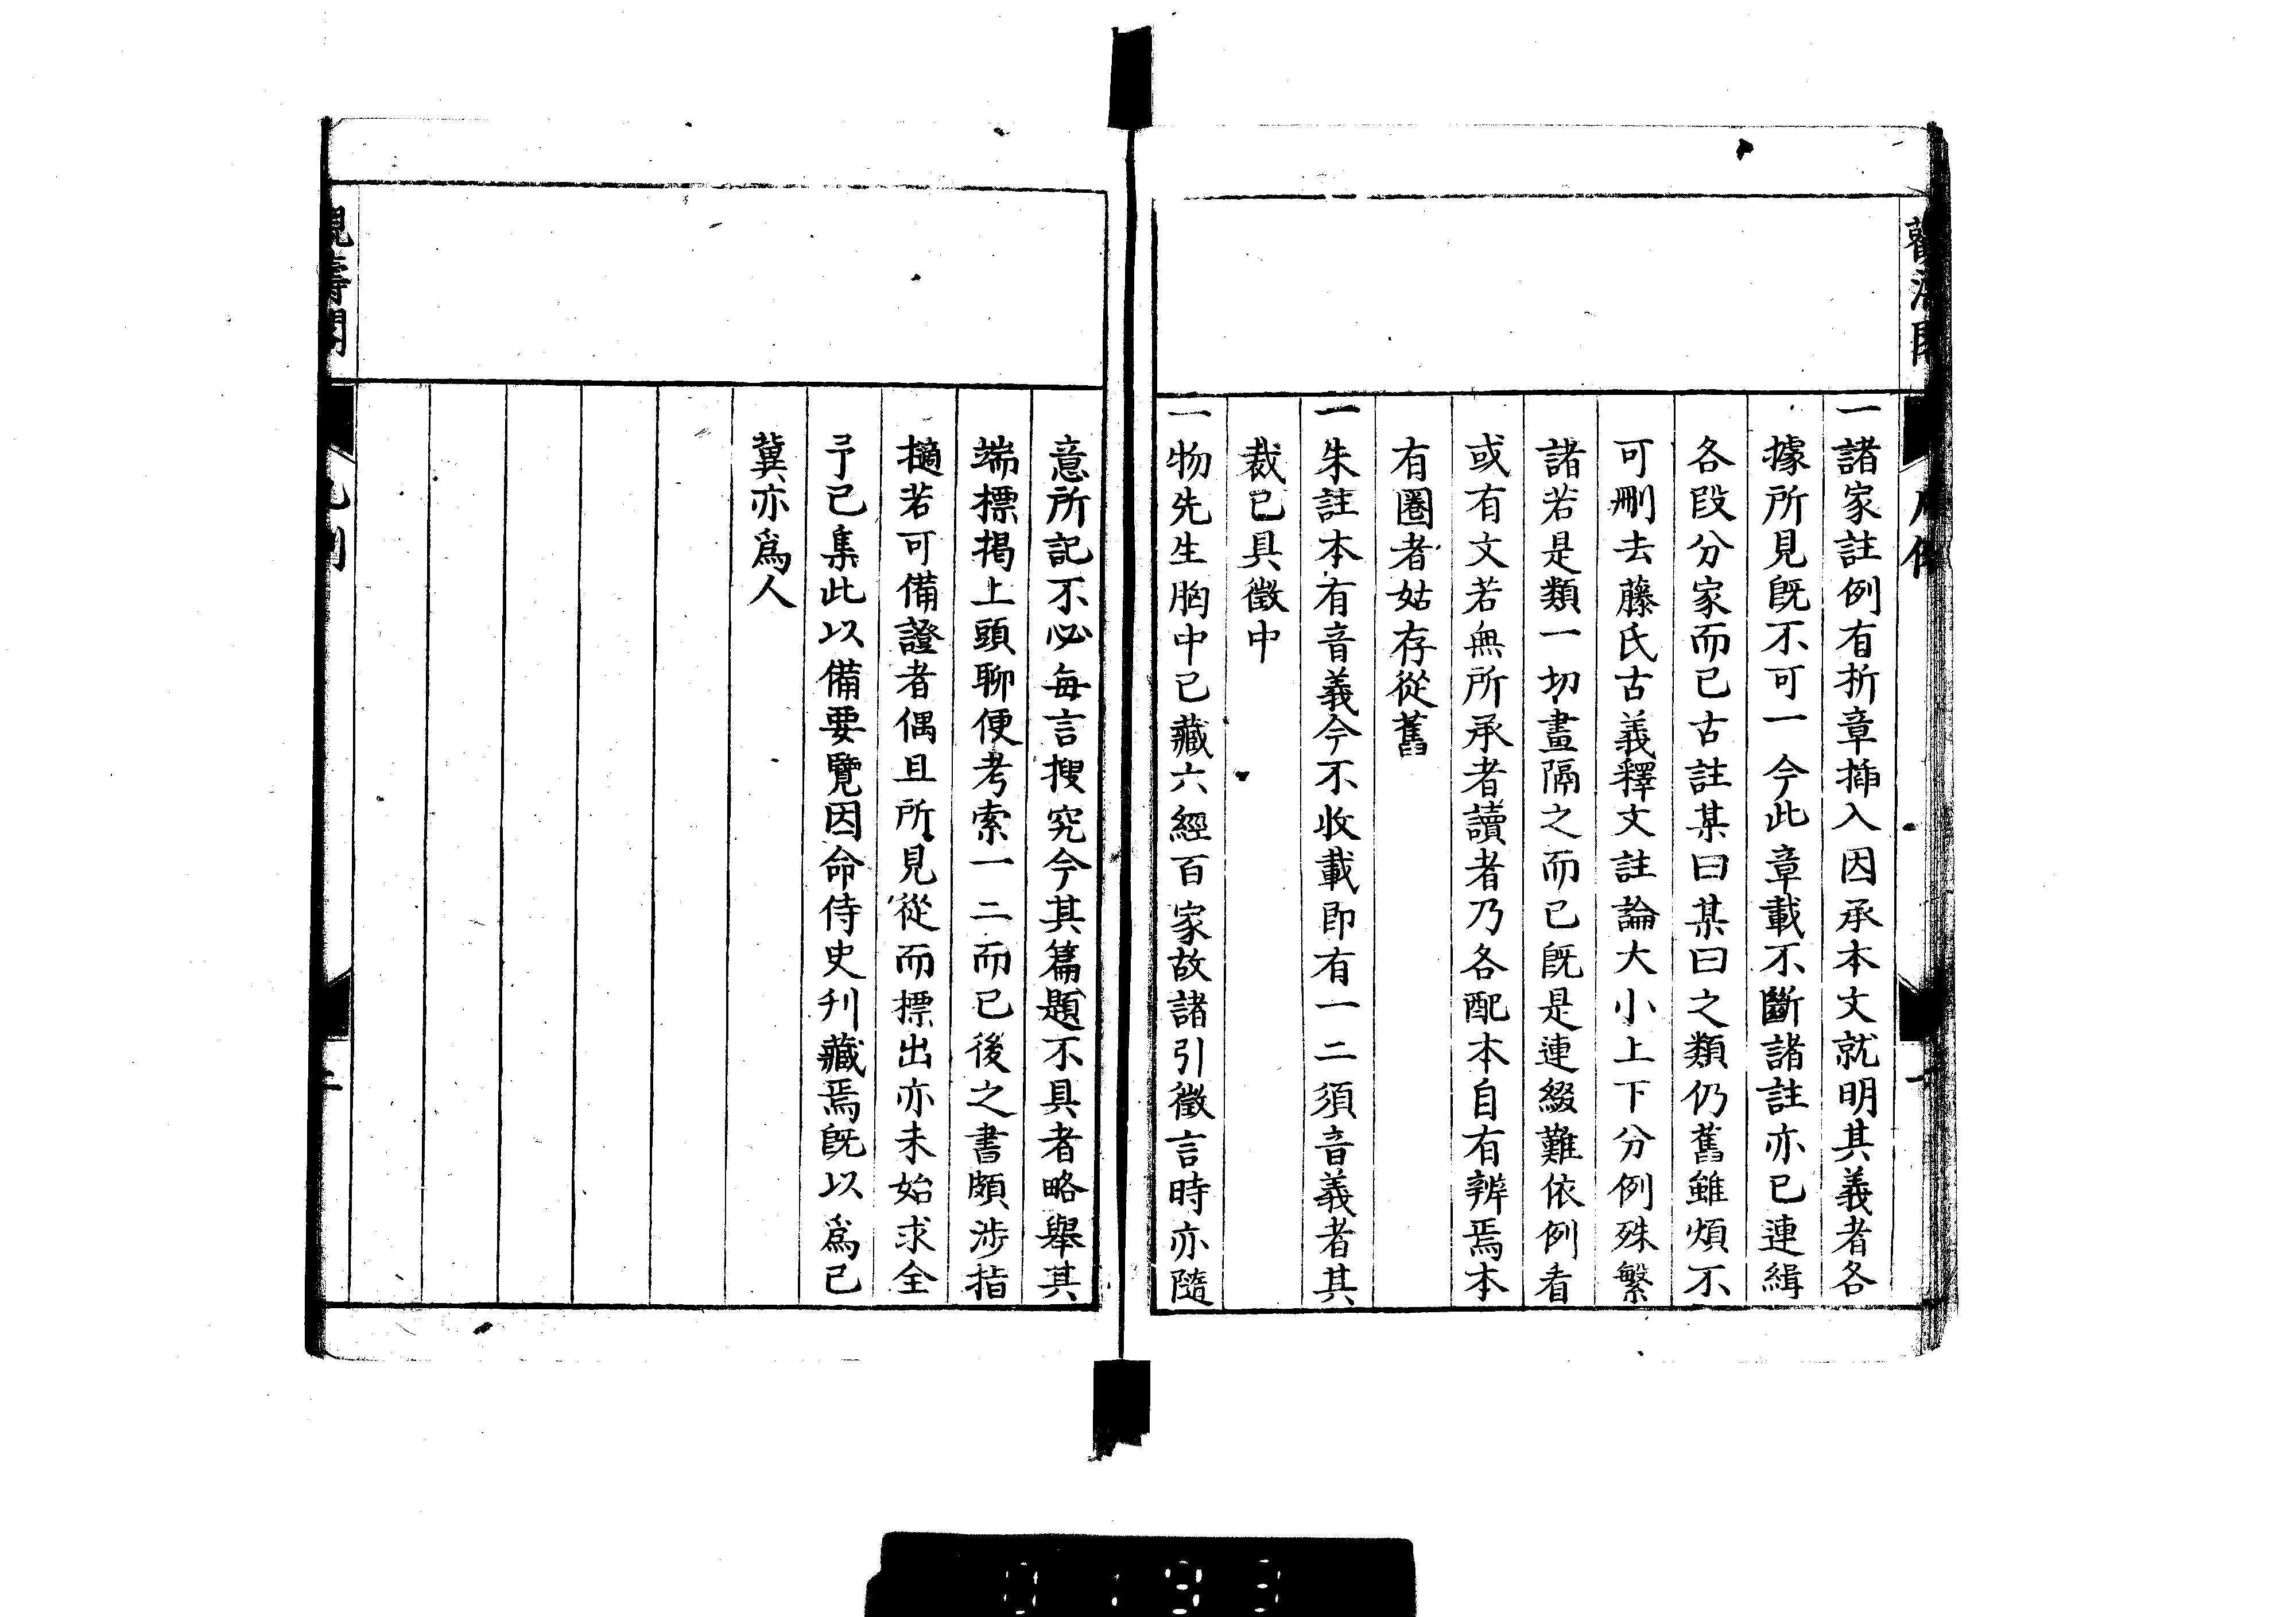 一諸家註例有折章揷入因承本文就明其義者各
據所見既不可一今此章載不斷諸註亦已連緝
各段分家而已古註某曰某曰之類仍舊雖煩不
可刪去藤氏古義釋文註論大小上下分例殊繁
諸若是類一切畫隔之而已既是連綴難依例看
或有文若無所承者讀者乃各配本自有辨焉本
有圈者姑存從舊
一朱註本有音義今不收載即有一二須音義者其
裁已具徵中
一物先生胸中已藏六經百家故諸引徵言時亦隨
意所記不必每言搜究今其篇題不具者略舉其
端標揭上頭聊便考索一二而已後之書頗涉指
擿若可備證者偶且所見從而標出亦未始求全
予已集此以備要覽因命侍史刋藏焉既以爲已
冀亦爲人
0193